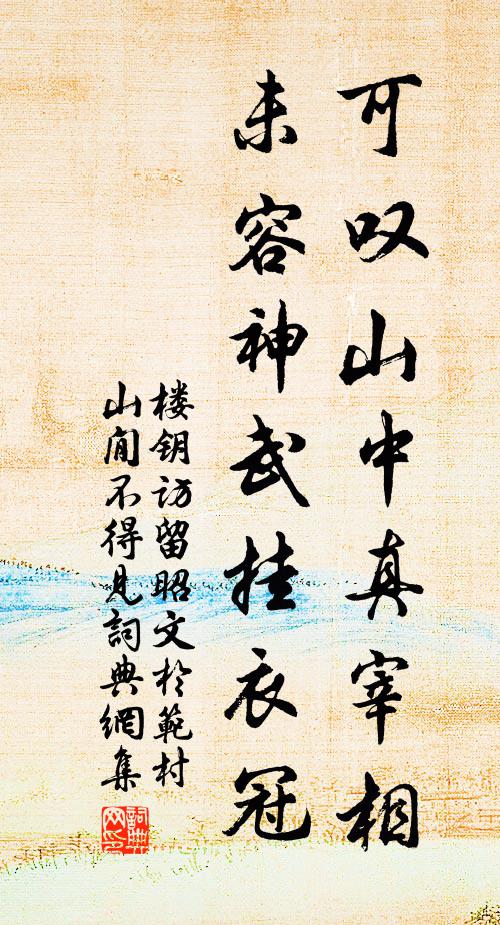 可叹山中真宰相
未容神武挂衣冠
楼钥访留昭文於范村
山间不得见词典网集
词典网印